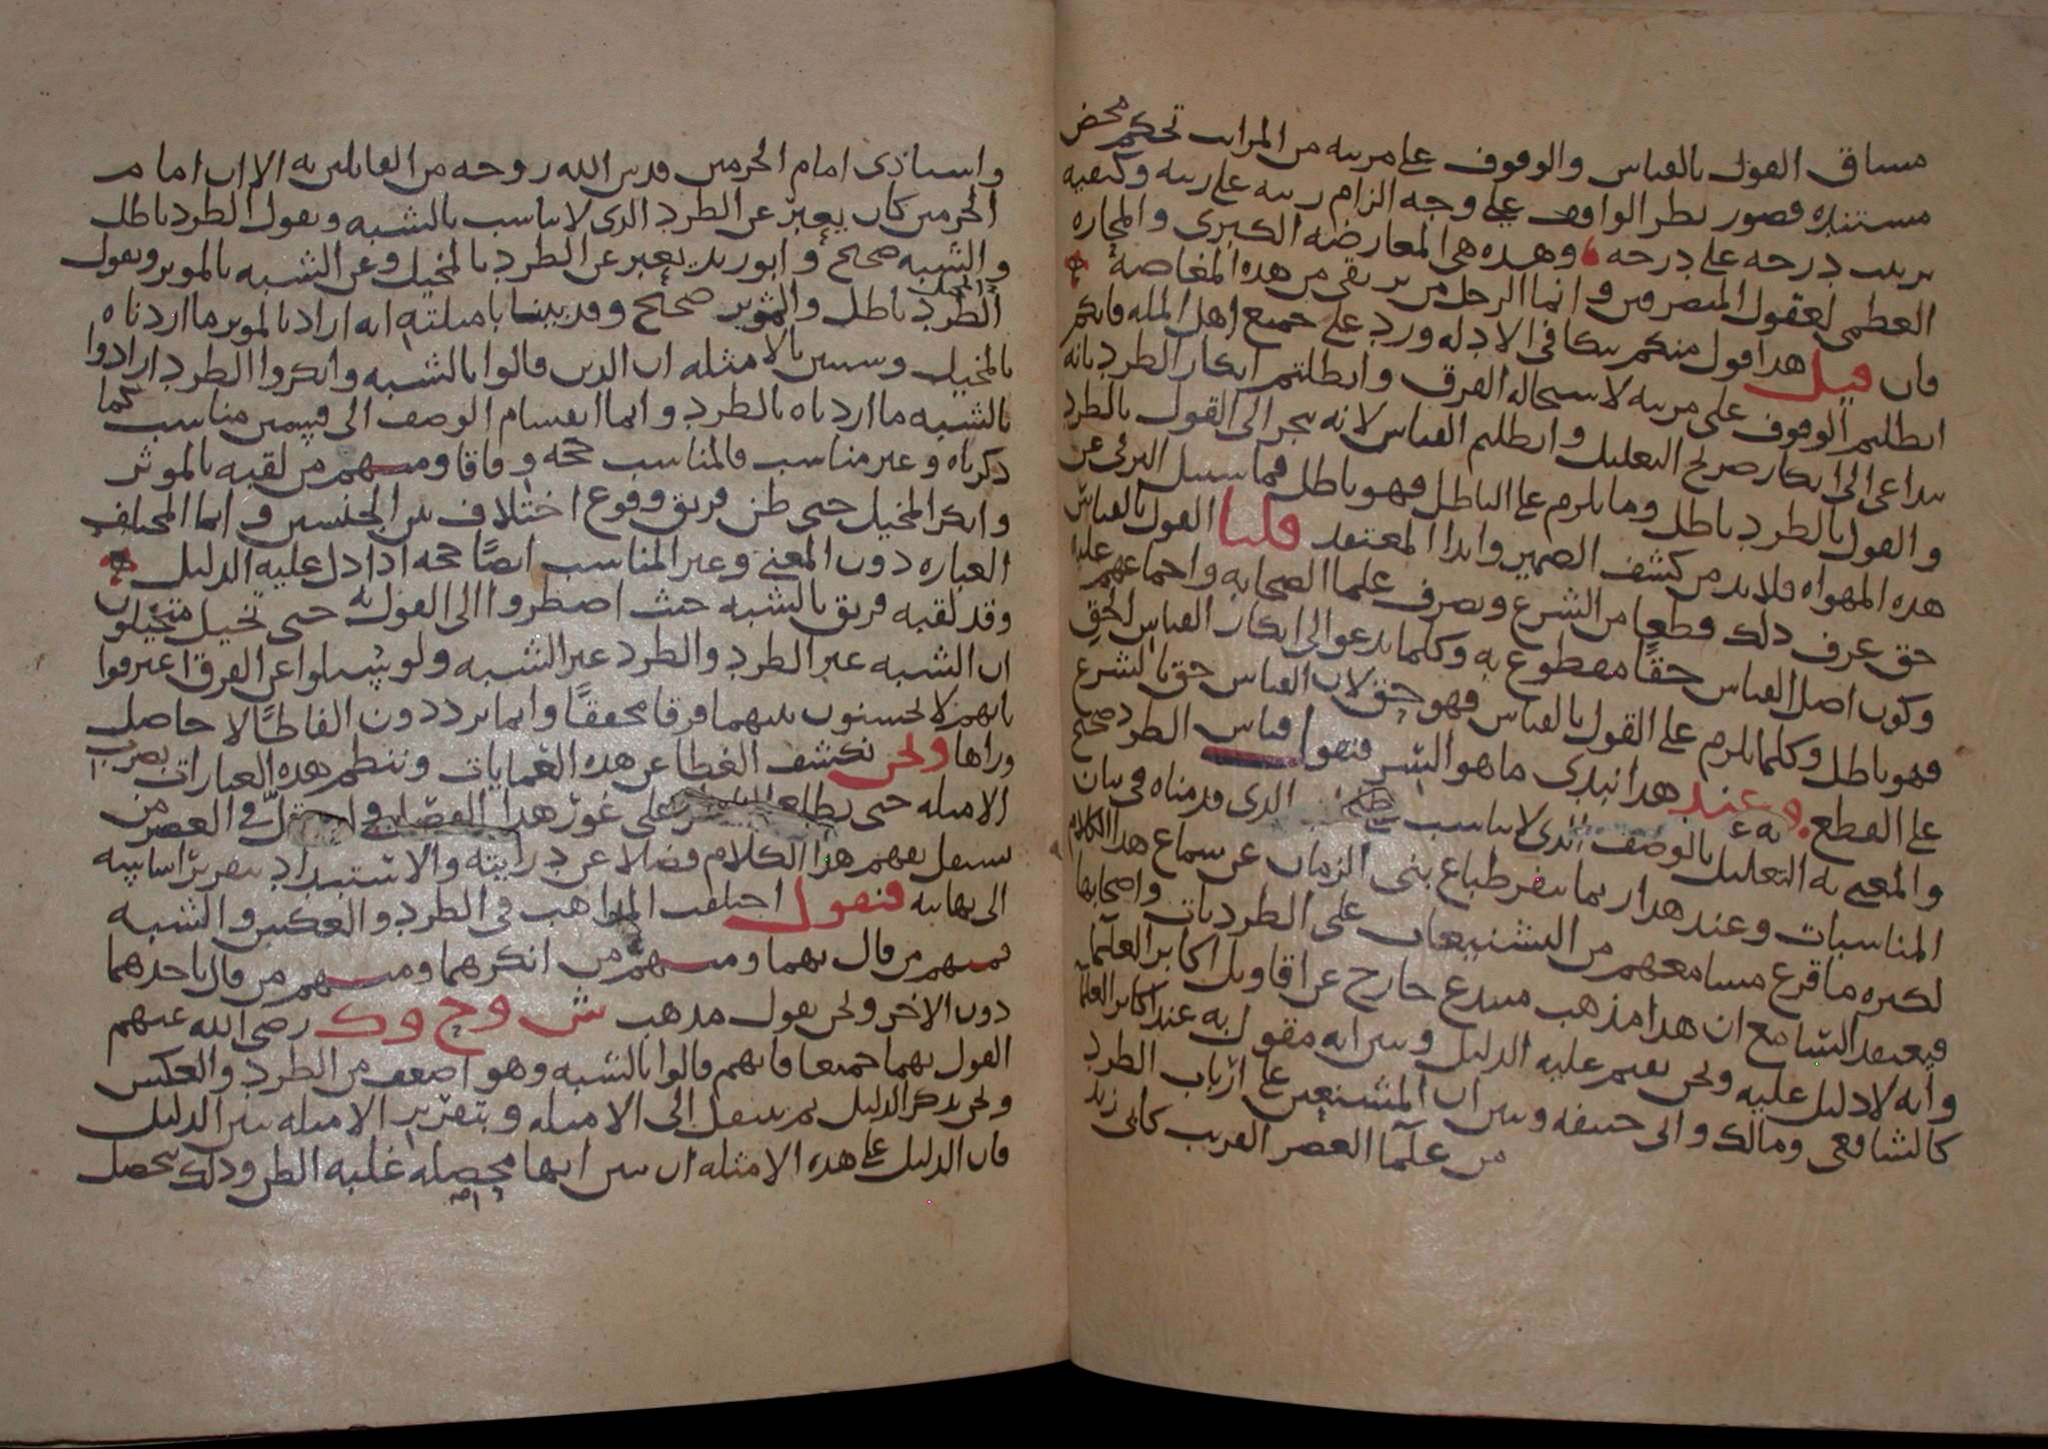 مساق القول بالقياس والوقوف على مرتبة من المراتب تحكم محض
مستنده قصور نظر الواقف على وجه الزام رتبة على رتبة وكيفية
ترتيب درجة على درجة وهذه هي المعارضة الكبرى والمحارة
العظمى لعقول المتصرفين وانما الرجل من يرتقى من هذه المغاصة
فان قيل هذا قول منكم بتكافى الادلة ورد على جميع اهل الملة فانكم
ابطلتم الوقوف على مرتبة لاستحالة الفرق وابطلتم انكار الطرد بانه
يتداعى الى انكار صريح التعليل وابطلتم القياس لانه يجر الى القول بالطرد
والقول بالطرد باطل وما يلزم على الباطل فهو باطل فما سبيل التبرئ عن
هذه المهواة فلا بد من كشف الضمير وابدا المعتقد قلنا القول بالقياس
حق عرف ذلك قطعا من الشرع وتصرف علما الصحابة واجماعهم عليه
وكون اصل القياس حقا مقطوع به وكلما يدعو الى انكار القياس الحق
فهو باطل وكلما يلزم على القول بالقياس فهو حق لان القياس حق بالشرع
على القطع وعند هذا نبدى ما هو السر فنقول قياس الطرد صحيح
والمعنى به التعليل بالوصف الذى لا يناسب الذى قدمناه فى بيان
المناسبات وعند هذا ربما ينفر طباع بنى الزمان عن سماع هذا الكلام
لكثرة ما قرع مسامعهم من التشنيعات على الطرديات واصحابها
فيعتقد السامع ان هذا مذهب مبتدع خارج عن اقاويل اكابر العلما
وانه لا دليل عليه ونحن نقيم عليه الدليل ونبين انه مقول به عند اكابر العلما
كالشافعى ومالك وابى حنيفة ونبين ان المشنعين على ارباب الطرد
من علما العصر القريب كابى زيد
واستاذى امام الحرمين قدس الله روحه من القايلين به الا ان امام
الحرمين كان يعبر عن الطرد الذى لا يناسب بالشبه ويقول الطرد باطل
والشبه صحيح وابو زيد يعبر عن الطرد بالمخيل وعن الشبه بالموثر ويقول
الطرد باطل والموثر صحيح وقد بينا بامثلته انه اراد بالموثر ما اردناه
بالمخيل وسنبين بالامثلة ان الذين قالوا بالشبه وانكروا الطرد ارادوا
بالشبه ما اردناه بالطرد وانما انقسام الوصف الى قسمين مناسب كما
ذكرناه وغير مناسب فالمناسب حجة وفاقا ومنهم من لقبه بالموثر
وانكر المخيل حتى ظن فريق وقوع اختلاف بين الجنسين وانما المختلف
العبارة دون المعنى وغير المناسب ايضًا حجة اذا دل عليه الدليل
وقد لقبه فريق بالشبه حيث اضطروا الى القول به حتى تخيل متخيلون
ان الشبه غير الطرد والطرد غير الشبه ولو سيلوا عن الفرق اعترفوا
بانهم لا يحسنون بينهما فرقا محققًا وانما يرددون الفاظًا لا حاصل
وراها ونحن نكشف الغطا عن هذه العمايات وننظم هذه العبارات بضرب
الامثلة حتى يطلع على غور هذا الفصل فى العصر من
يستقل بفهم هذا الكلام فضلا عن درايته والاستبداد بتقرير اساسه
الى نهايته فنقول اختلفت المذاهب فى الطرد والعكس والشبه
فمنهم من قال بهما ومنهم من انكرهما ومنهم من قال باحدهما
دون الاخر ونحن نقول مذهب ش وح وك رضى الله عنهم
القول بهما جميعا فانهم قالوا بالشبه وهو اضعف من الطرد والعكس
ونحن نذكر الدليل ثم ننتقل الى الامثلة وبتقرير الامثلة نبين الدليل
فان الدليل على هذه الامثلة ان نبين انها محصلة غلبة الظن وذلك يحصل